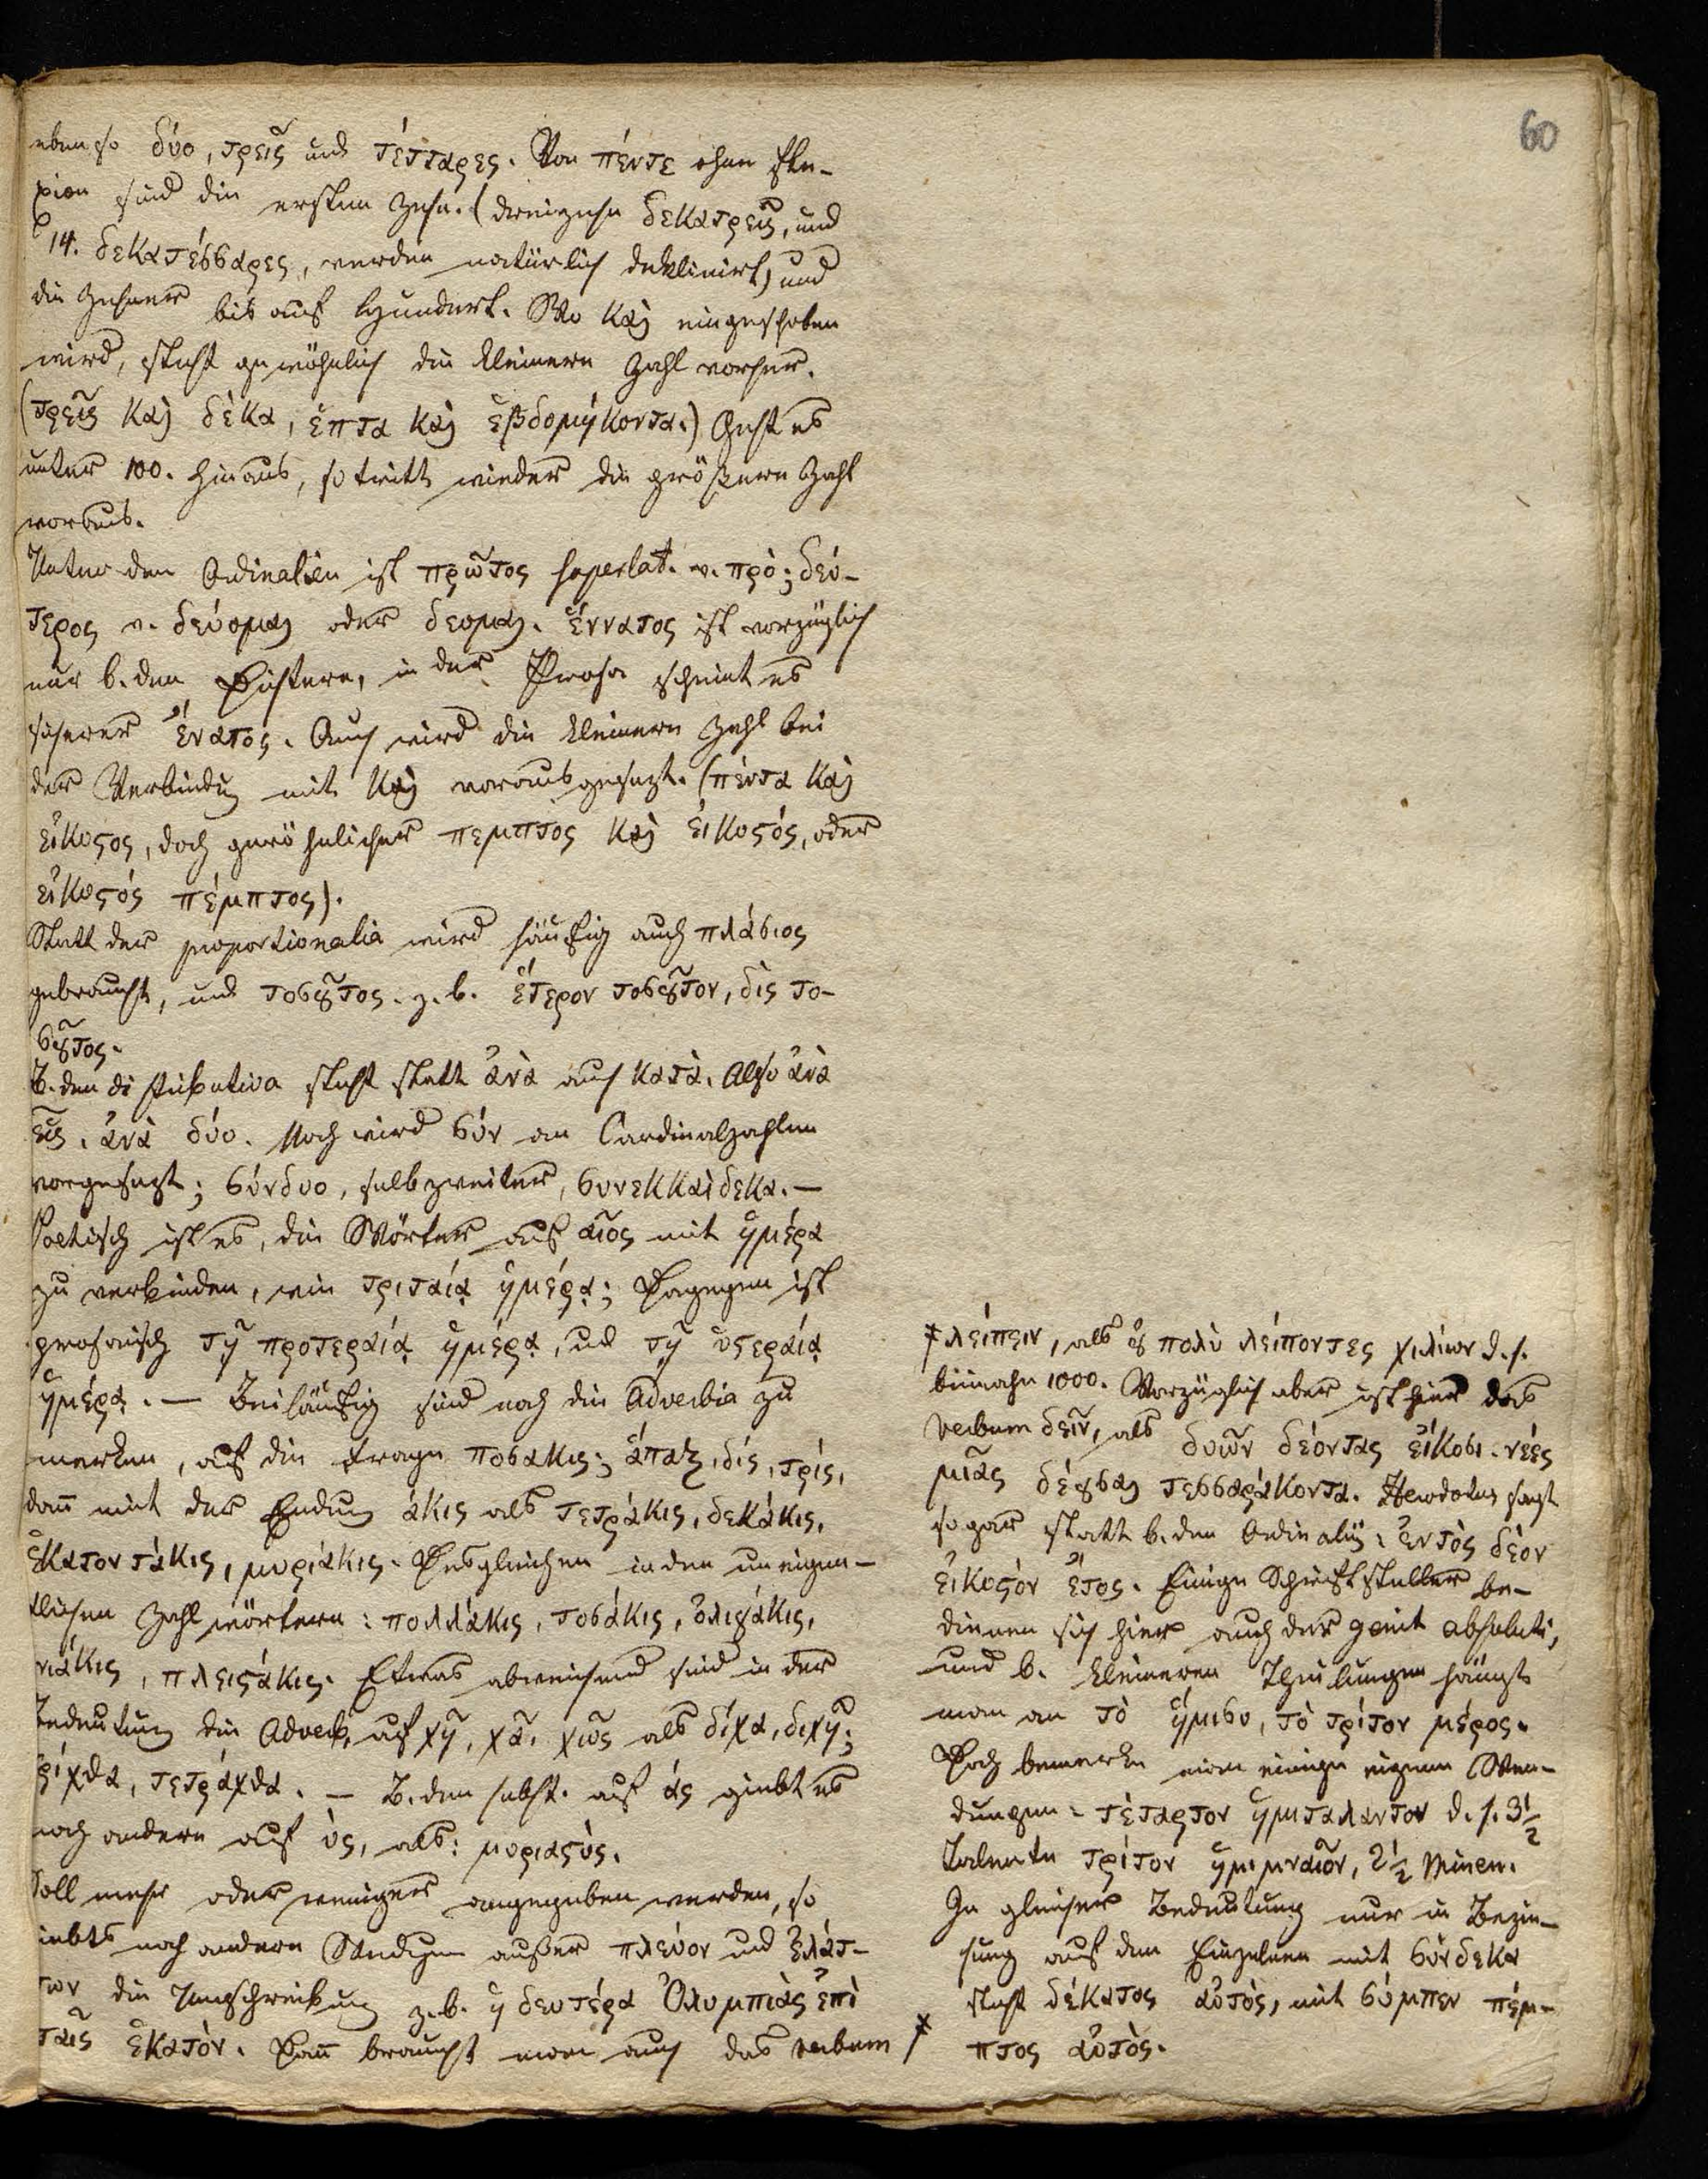 60
eben so δύο, τρεῖς und τέτταρες. Von πέντε ohne Fle-
xion sind die ersten Zehn. (dreizehn δεκατρεῖς, und
14. δεκατέσσαρες, werden natürlich deklinirt,) und
die Zehner bis auf Hundert. Wo καὶ eingeschoben
wird, steht gewöhnlich die kleinere Zahl vorher.
(τρεῖς καὶ δέκα, ἑπτα καὶ ἑβδομήκοντα.) Geht es
unter 100. hinaus, so tritt wieder die größere Zahl
voraus.
Unter den Ordinalien ist πρῶτος superlat. v. πρὸ; δεύ-
τερος v. δεύομαι oder δεομαι. ἔννατος ist vorzüglich
nur b. den Dichtern, in der Prosa scheint es
sicherer ἔνατος. Auch wird die kleinere Zahl bei
der Verbindung mit καὶ vorausgesezt. (πέντα καὶ
εἴκοϛος, doch gewöhnlicher πεμπτος καὶ εἰκοϛός, oder
εἰκοϛός πέμπτος).
Statt der proportionalia wird häufig auch πλάσιος
gebraucht, und τοσȣ͂τος. z. b. ἕτερον τοσȣ͂τον, δὶς το-
σȣ͂τος.
B. den distributiva steht statt ἀνὰ auch κατὰ. Also ἀνὰ
εἷς, ἀνὰ δύο. Noch wird σύν an Cardinalzahlen
vorgesezt; σύνδυο, selbzweiter, συνεκκαίδεκα. —
Poetisch ist es, die Wörter auf αῖος mit ἡμέρα
zu verbinden, wie τριταίᾳ ἡμέρᾳ; Dagegen ist
prosaisch τῇ προτεραίᾳ ἡμέρᾳ, und τῇ ὑϛεραίᾳ
ἡμέρᾳ. — Beiläufig sind noch die Adverbia zu
merken, auf die Frage ποσακις; ἅπαξ, δίς, τρίς,
dañ mit der Endung άκις als τετράκις, δεκάκις,
ἑκατοντάκις, μυριάκις. Desgleichen in den uneigen-
tlichen Zahlwörtern: πολλάκις, τοσάκις, ὀλιγάκις,
νιάκις, πλειϛάκις. Etwas abweichend sind in der
Bedeutung die Adverb. auf χῆ, χᾶ, χῶς als δίχα, διχῆ;
τρίχθα, τετράχθα. — B. den subst. auf άς giebt es
noch andere auf ύς, als: μυριαϛύς.
Soll mehr oder weniger angegeben werden, so
giebts noch andere Wendungen außer πλέον und ἐλάτ-
των die Umschreibung z. b. ἡ δευτέρα Ὀλυμπιὰς ἐπὶ
ταῖς ἑκατόν. Dañ braucht man auch das verbum
λείπειν, als ȣ̓ πολὺ λείποντες χιλίων d. h.
beinahe 1000. Vorzüglich aber ist hier das
verbum δεῖν, als δυῶν δέοντας εἴκοσι. νέες
μιᾶς δέȣσαι τεσσαράκοντα. Herodotus sagt
sogar statt b. den Ordinaliẽ: ἑνὸς δέον
εἰκοϛὸν ἔτος. Einige Schriftsteller be-
dienen sich hier auch der genit absoluti,
und b. kleineren Theilungen hängt
man an τὸ ἥμισυ, τὸ τρίτον μέρος.
Doch bemerke man einige eigene Wen-
dungen: τέταρτον ἡμιταλαντον d. h. 3½
Talente τρίτον ἡμιμναῖον, 2½ Minen.
In gleicher Bedeutung nur in Bezie-
hung auf den Einzelnen mit σύνδεκα
steht δέκατος αὐτὸς, mit σύμπεν πέμ-
πτος αὐτὸς.